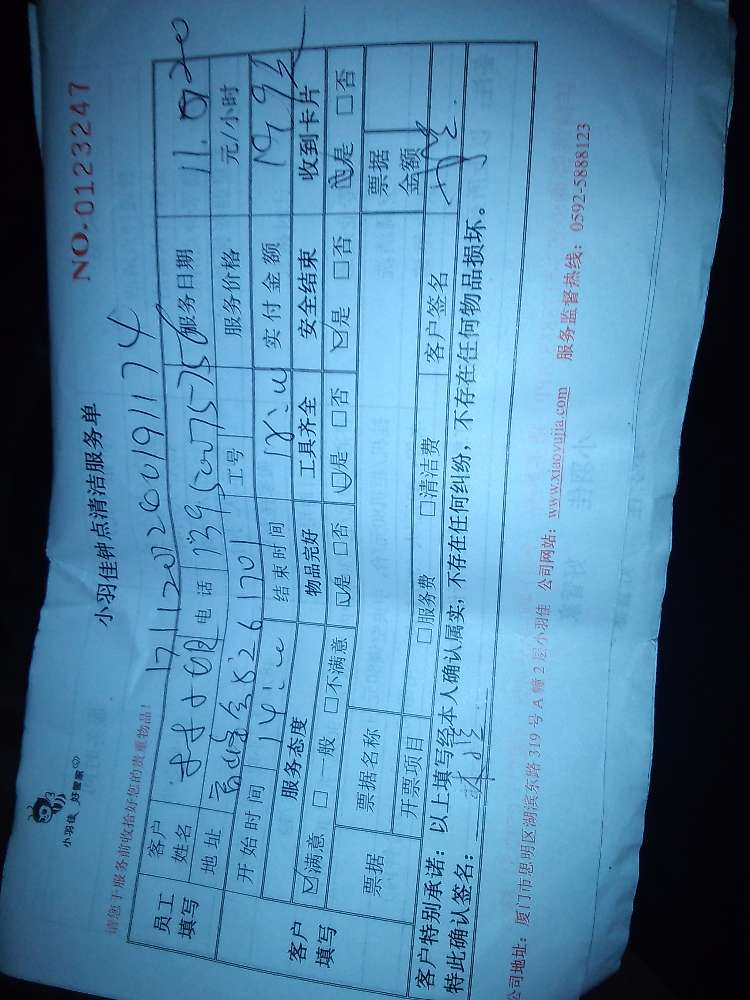 小羽佳 好管家
小羽佳钟点清洁服务单
NO.0123247
请您于服务前收拾好您的贵重物品！
171120220191174
员工填写
客户姓名 电话 服务日期 11.
地址 826 1701 工号 服务价格 元/小时
开始时间 结束时间 实付金额
客户填写
服务态度 物品完好 工具齐全 安全结束 收到卡片
☑满意 □一般 □不满意 ☑是 □否 ☑是 □否 ☑是 □否 ☑是 □否
票据 票据名称 票据金额
开票项目 □服务费 □清洁费 客户签名
客户特别承诺：以上填写经本人确认属实，不存在任何纠纷，不存在任何物品损坏。
特此确认签名：
公司地址：厦门市思明区湖滨东路 319 号 A 幢 2 层小羽佳 公司网站：www.xiaoyujia.com 服务监督热线：0592-5888123